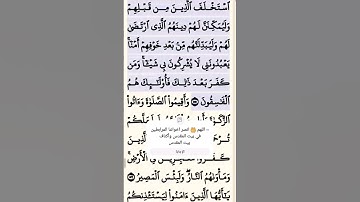 ٱسْتَخْلَفَ ٱلَّذِينَ مِن قَبْلِهِمْ
وَلَيُمَكِّنَنَّ لَهُمْ دِينَهُمُ ٱلَّذِى ٱرْتَضَىٰ
لَهُمْ وَلَيُبَدِّلَنَّهُم مِّنۢ بَعْدِ خَوْفِهِمْ أَمْنًا
يَعْبُدُونَنِى لَا يُشْرِكُونَ بِى شَيْـًٔا وَمَن
كَفَرَ بَعْدَ ذَٰلِكَ فَأُو۟لَـٰٓئِكَ هُمُ
ٱلْفَـٰسِقُونَ ۝ وَأَقِيمُوا۟ ٱلصَّلَوٰةَ وَءَاتُوا۟
ٱلزَّكَوٰةَ
– اللهم🤲 انصر أخواننا المرابطين
في بيت المقدس وأكناف
بيت المقدس
ٱلَّذِينَ
كَفَرُوا۟ مُعْجِزِينَ فِى ٱلْأَرْضِ
وَمَأْوَىٰهُمُ ٱلنَّارُ وَلَبِئْسَ ٱلْمَصِيرُ ۝
يَـٰٓأَيُّهَا ٱلَّذِينَ ءَامَنُوا۟ لِيَسْتَـْٔذِنكُمُ